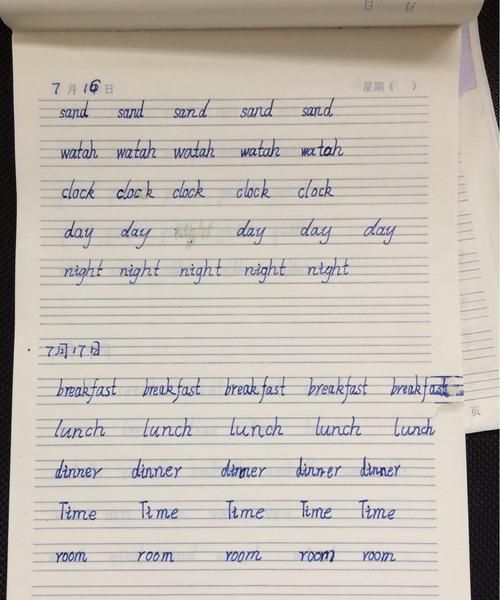 7月16日 星期( )
sand sand sand sand sand
watah watah watah watah watah
clock clock clock clock clock
day day day day day
night night night night night
7月17日
breakfast breakfast breakfast breakfast breakfast
lunch lunch lunch lunch lunch
dinner dinner dinner dinner dinner
Time Time Time Time Time
room room room room room
页